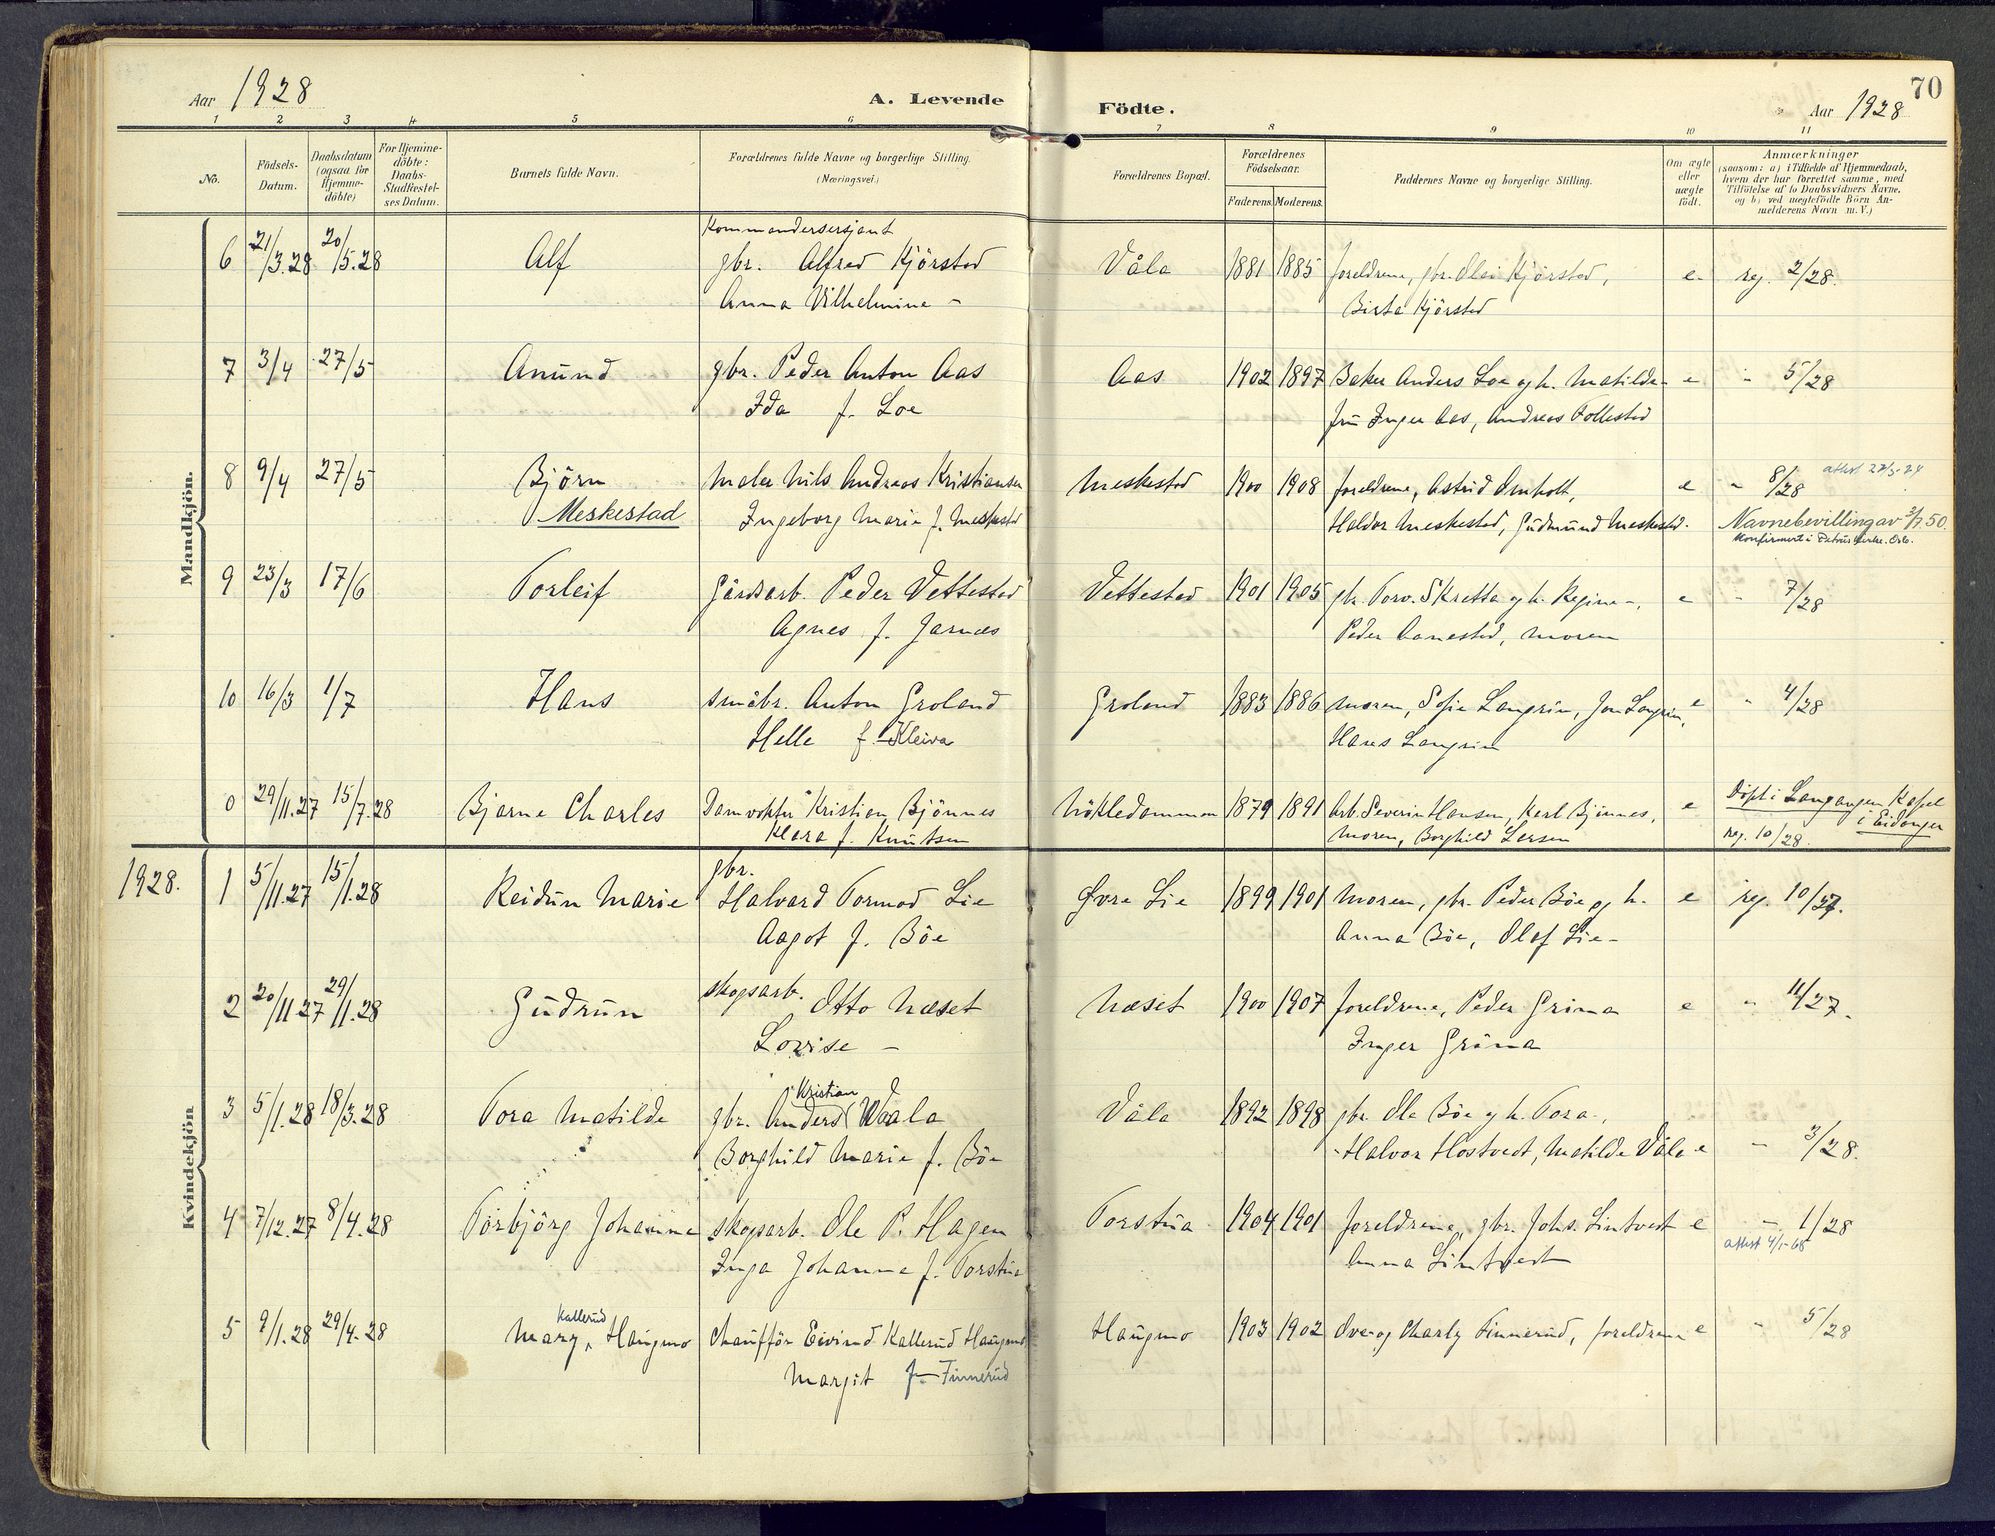 Aar 1928
A. Levende
Födte.
Aar 1928
70
1 2 3 4 5 6 7 8 9 10 11
No.
Födsels-
Datum.
Daabsdatum
(ogsaa for
Hjemme-
döbte)
For Hjemme-
döbte:
Daabs-
Stadfæstel-
ses Datum.
Barnets fulde Navn.
Forældrenes fulde Navne og borgerlige Stilling.
(Næringsvei.)
Forældrenes Bopæl.
Forældrenes
Födselsaar.
Faderens. Moderens.
Faddernes Navne og borgerlige Stilling.
Om ægte
eller
uægte
födt.
Anmærkninger
(saasom: a) i Tilfælde af Hjemmedaab,
hvem der har forrettet samme, med
Tilföielse af to Daabsvidners Navne.
og b) ved uægtefödte Börn An-
melderens Navn m. V.)
Mandkjön.
Kommandersersjant
6 21/3.28 20/5.28 Alf gbr. Alfred Kjörstad Våla 1881 1885 foreldrene, gbr. Olai Kjörstad, e. reg. 2/28.
Anna Vilhelmine - Birte Kjörstad
7 3/4 27/5 Anund gbr. Peder Anton Aas Aas 1902 1897 Baker Anders Loe og h. Matilde- e " 5/28
Ida f. Loe fru Inger Aas, Andreas Follestad
8 9/4 27/5 Björn Maler Nils Andreas Kristiansen Meskestad 1900 1908 foreldrene, Astrid Omholt, e " 8/28
Meskestad Ingeborg Marie f. Meskestad Haldor Meskestad, Gudmund Meskestad. Navnebevilling av 3/7.50
Konfirmert i Petrus kirke. Oslo.
9 23/3 17/6 Torleif Gårdsarb. Peder Vettestad Vettestad 1901 1905 gbr. Torv. Skretta og h. Regine-, e " 7/28
Agnes f. Jarnæs Peder Aanestad, moren
10 16/3 1/7 Hans småbr. Anton Groland Groland 1883 1886 moren, Sofie Langrin, Jon Langrin, e " 4/28
Helle f. Kleiva Hans Langrin
0 29/11.27 15/7.28 Bjarne Charles Damvokter Kristian Bjönnes Nökledammen 1879 1891 Arb. Severin Hansen, Karl Bjönnes, e Döpt i Langangen Kapel
Klara f. Knutsen moren, Borghild Larsen i Eidanger
reg. 10/28.
1928.
Kvindekjön
gbr.
1 5/11.27 15/1.28 Reidun Marie Halvard Tormod Lie Øvre Lie 1899 1901 Moren, gbr. Peder Böe og h. e reg. 10/27.
Aagot f. Böe Anna Böe, Olaf Lie-
2 20/11 27 29/1.28 Gudrun skogsarb. Otto Næset Næset 1900 1907 foreldrene, Peder Gröna e " 11/27.
Lovise - Inger Gröna
Kristian
3 5/1.28 18/3.28 Tora Matilde gbr. Anders Vaala Våla 1892 1898 gbr. Ole Böe og h. Tora,
Borghild Marie f. Böe Halvor Hostvedt, Matilde Våla e " 3/28.
4 7/12.27 8/4.28 Torbjörg Johanne skogsarb. Ole P. Hagen Torstua 1904 1901 foreldrene, gbr. Johs. Lintvedt e " 1/28
Inga Johanne f. Torstua Anna Lintvedt attest 4/1-68
Kallerud
5 9/1.28 29/4.28 Mary, Haugmo Chaufför Eivind Kallerud Haugmo Haugmo 1903 1902 Ove og Charly Finnerud, foreldrene e " 5/28
Margit f. Finnerud